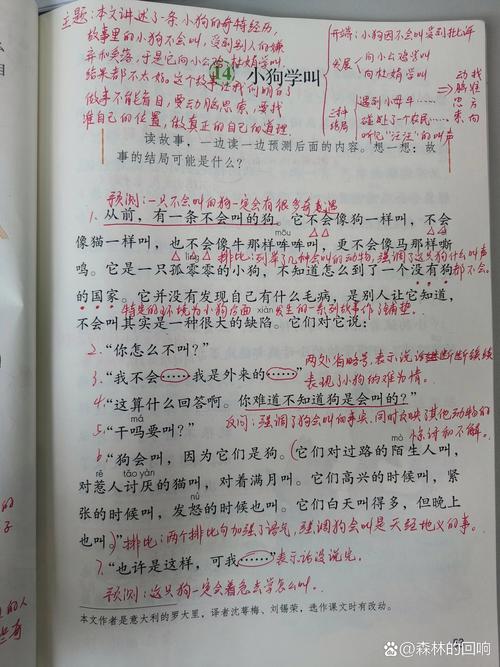 主题:本文讲述了一条小狗的奇特经历,
故事里的小狗不会叫,受到别人的嫌
弃和奚落,于是它向小公鸡、杜鹃学叫,
结果都不太好。这个故事让我们明白了
做事不能盲目,要动脑思索,要找
准自己的位置,做真正的自己的道理
开端:小狗因不会叫受到批评
发展
向小公鸡学叫
向杜鹃学叫
三种
结局
遇到小母牛……
碰到了一个农民……
听见“汪汪”的叫声
动脑思考
找准方向
14 小狗学叫
读故事,一边读一边预测后面的内容。想一想:故
事的结局可能是什么?
预测:一只不会叫的狗一定会有很多奇遇
1. 从前,有一条不会叫的狗。它不会像狗一样叫,不会
mōu
像猫一样叫,也不会像牛那样哞哞叫,更不会像马那样嘶
排比:列举了几种会叫的动物,强调了这只狗什么叫声
都不会。
鸣。它是一只孤零零的小狗,不知道怎么到了一个没有狗
的国家。它并没有发现自己有什么毛病,是别人让它知道,
特定的环境为小狗后面发生的一系列故事作了铺垫。
xiàn
不会叫其实是一种很大的缺陷。它们对它说:
2. “你怎么不叫?”
3. “我不会……我是外来的……”
两处省略号,表示说话断断续续
表现了小狗的难为情。
4. “这算什么回答啊。你难道不知道狗是会叫的?”
反问:强调了狗会叫的事实,同时反映了其他动物的
惊讶和不解。
má
5. “干吗要叫?”
mò
6. “狗会叫,因为它们是狗。它们对过路的陌生人叫,
rě tǎo yàn
对惹人讨厌的猫叫,对着满月叫。它们高兴的时候叫,紧
nù
张的时候叫,发怒的时候也叫。它们白天叫得多,但晚上
也叫。”
排比:两个排比句加强了语气,强调狗会叫是天经地义的事。
7. “也许是这样,可我……”
表示话没说完。
预测:这只狗一定会着急去学怎么叫。
本文作者是意大利的罗大里,译者沈萼梅、刘锡荣,选作课文时有改动。
@森林的回响